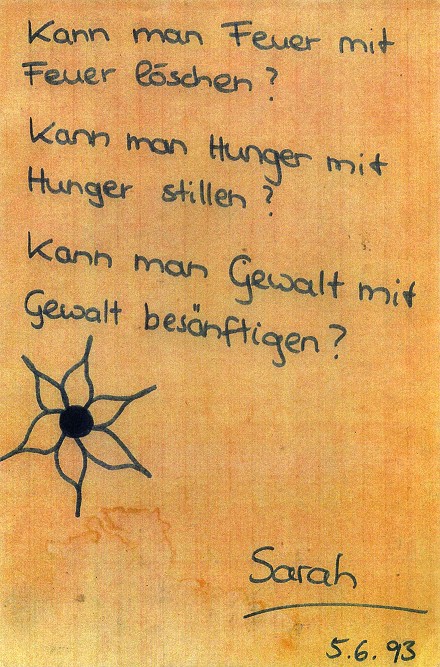 Kann man Feuer mit
Feuer löschen?
Kann man Hunger mit
Hunger stillen?
Kann man Gewalt mit
Gewalt besänftigen?
Sarah
5.6.93